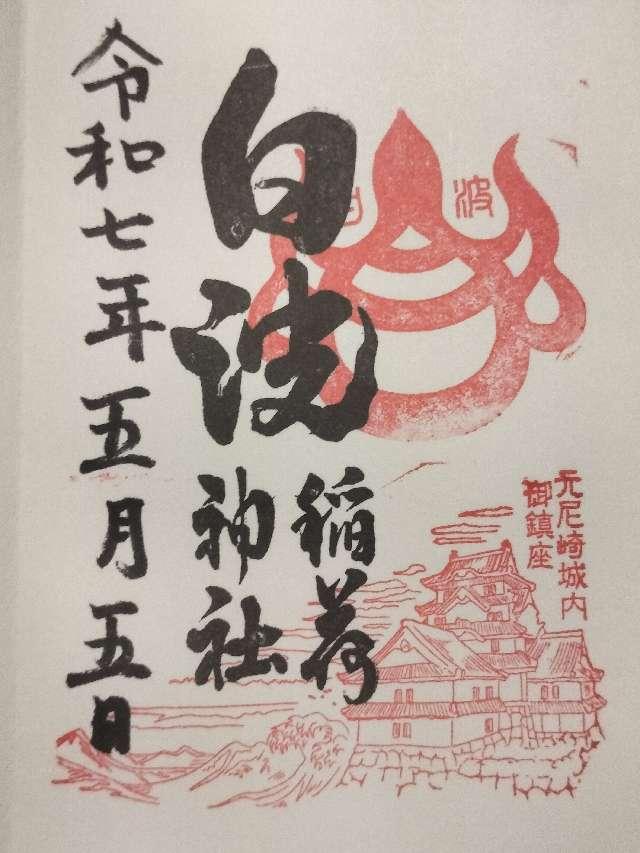 白波
稲荷
神社
令和七年五月五日
白波
元尼崎城内
御鎮座